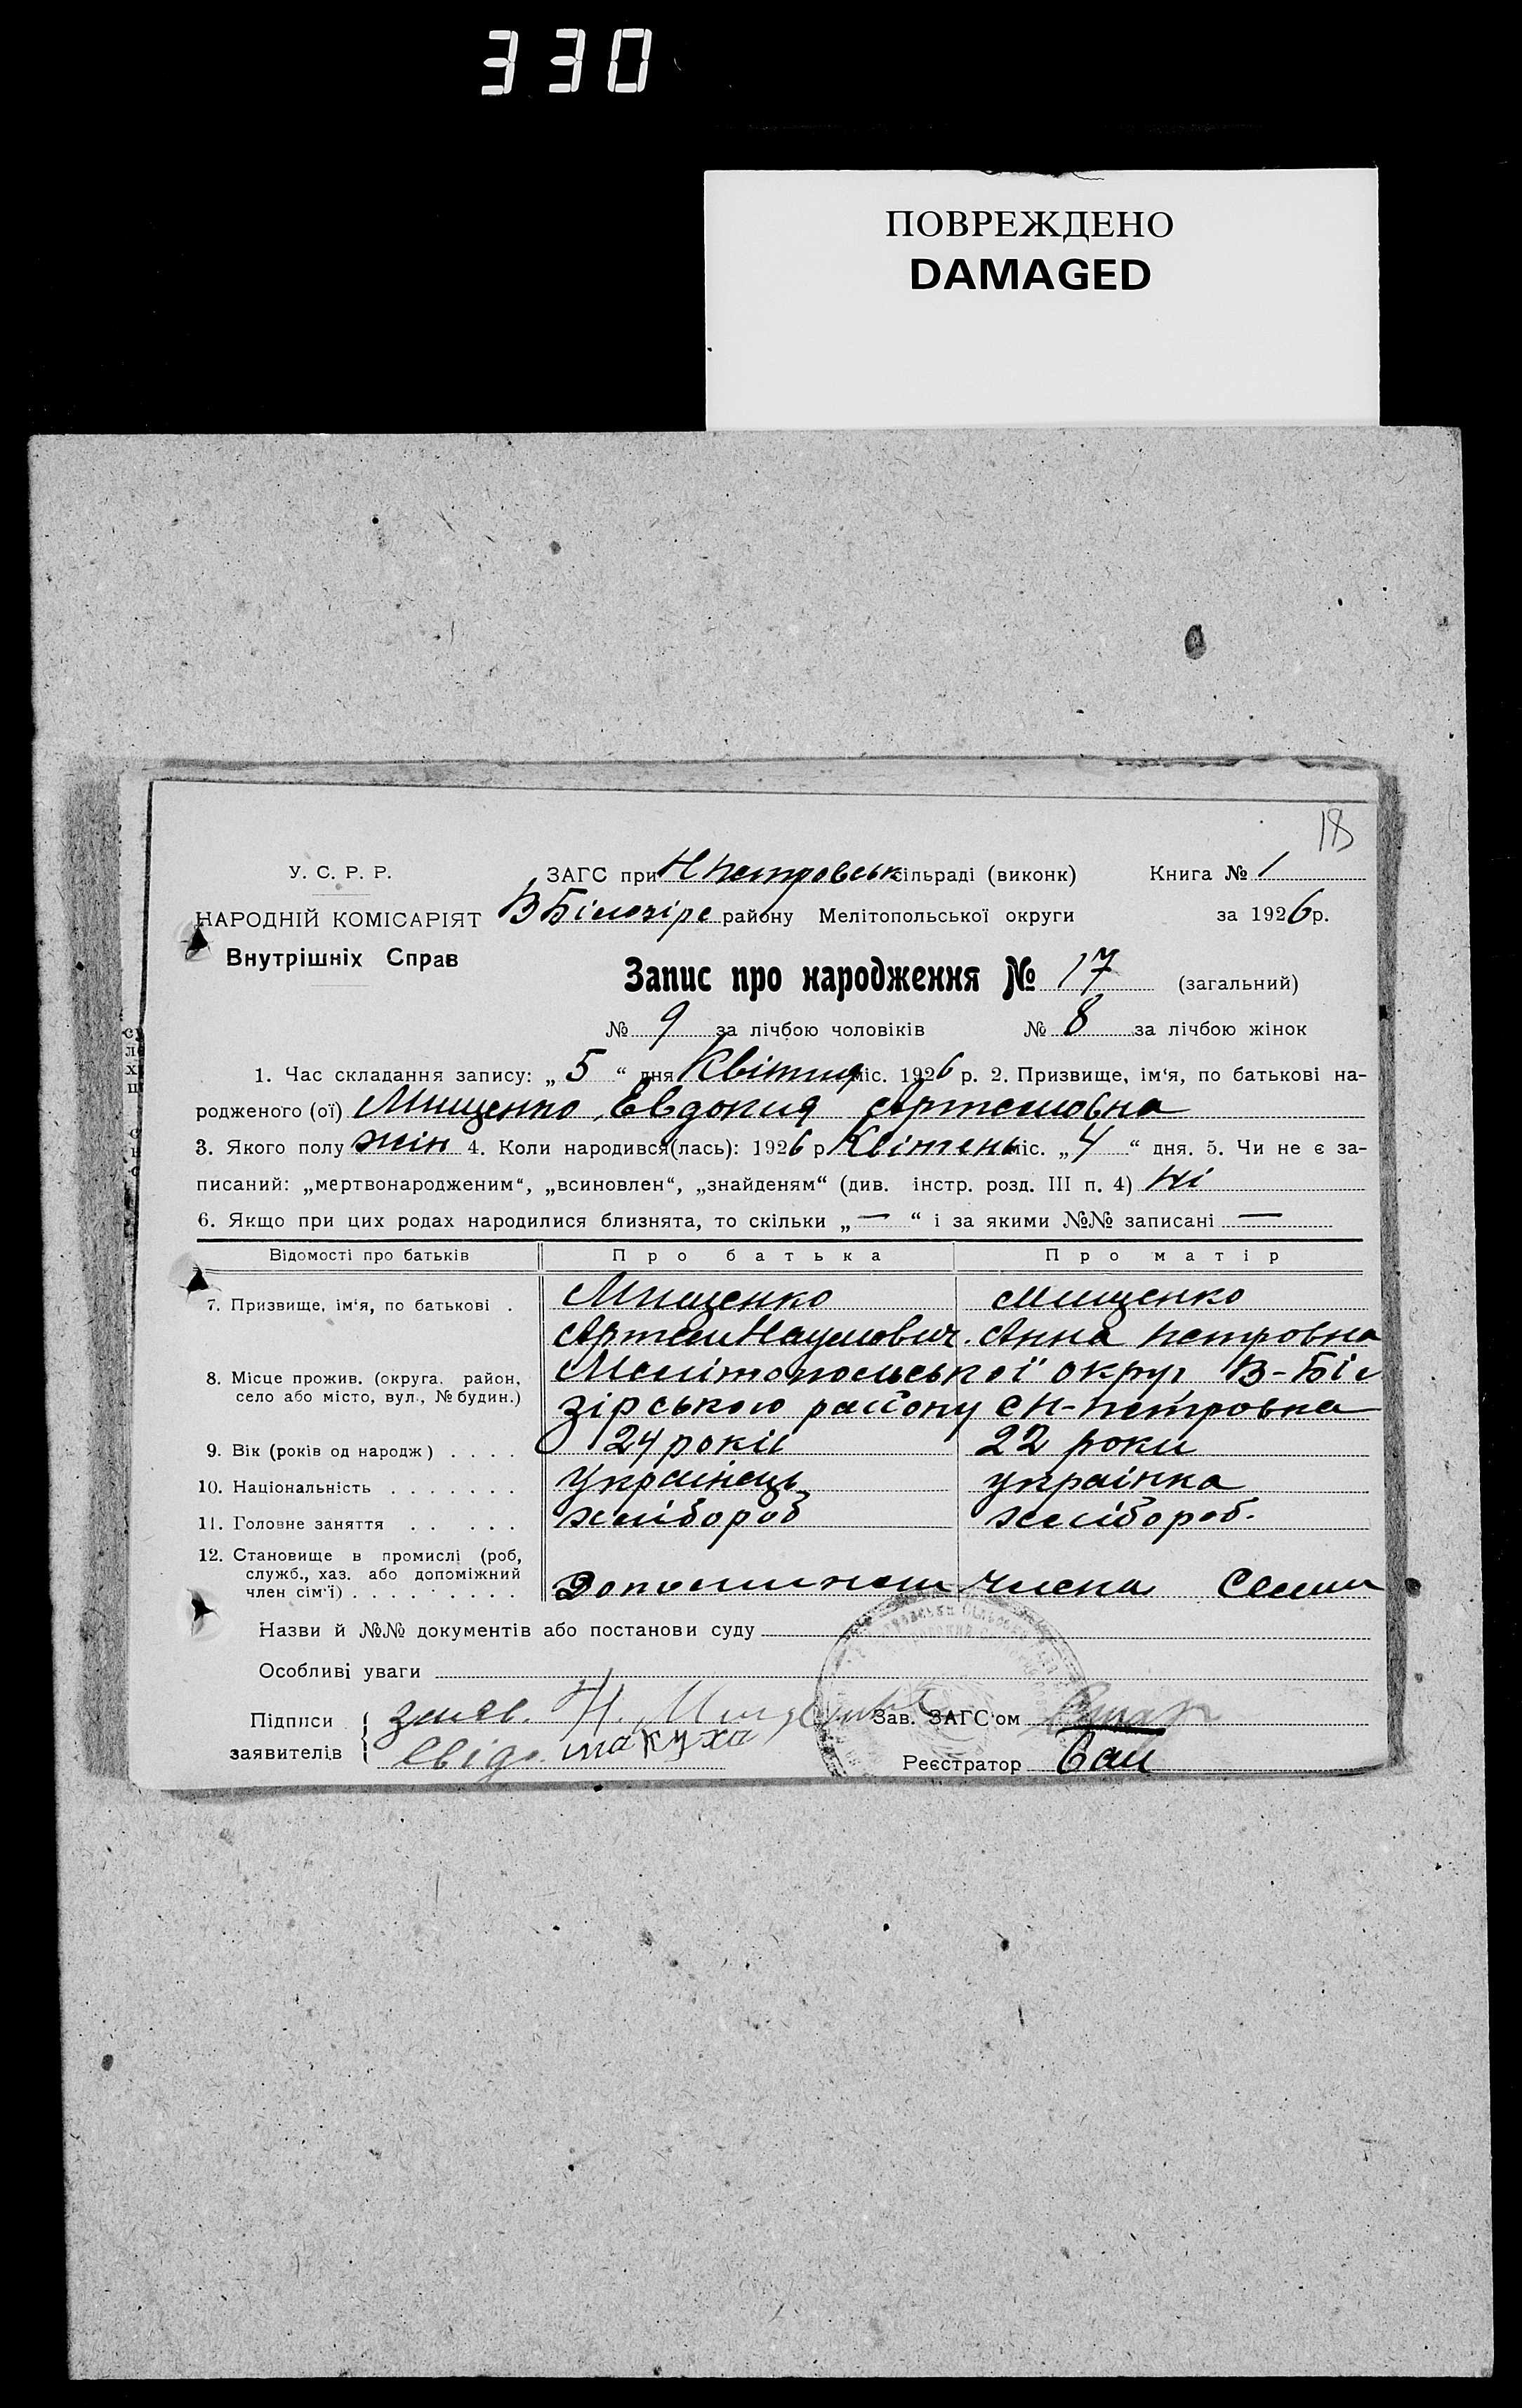 330
ПОВРЕЖДЕНО
DAMAGED
18
У. С. Р. Р.
НАРОДНІЙ КОМІСАРІЯТ
Внутрішніх Справ
ЗАГС при Н Петровськ сільраді (виконк) Книга № 1
В Білозіре району Мелітопольської округи за 1926 р.
Запис про народження № 17 (загальний)
№ 9 за лічбою чоловіків № 8 за лічбою жінок
1. Час складання запису: „ 5 “ дня Квітня міс. 1926 р. 2. Призвище, ім‘я, по батькові на-
родженого (ої) Мищенко Евдокия Артемовна
3. Якого полу жін 4. Коли народився(лась): 1926 р Квітень міс. „ 4 “ дня. 5. Чи не є за-
писаний: „мертвонародженим“, „всиновлен“, „знайденям“ (див. інстр. розд. III п. 4) Ні
6. Якщо при цих родах народилися близнята, то скільки „ — “ і за якими №№ записані —
Відомості про батьків Про батька Про матір
7. Призвище, ім‘я, по батькові . Мищенко Мищенко
Артем Наумович. Анна Петровна
8. Місце прожив. (округа, район, Мелітопольської округ В-Біл
село або місто, вул., № будин.) зірського району с Н-Петровка
9. Вік (років од народж) . . . . 24 роки 22 роки
10. Національність . . . . . . . Українець українка
11. Головне заняття . . . . . хлібороб хлібороб.
12. Становище в промислі (роб,
служб., хаз. або допоміжний
член сім‘ї) . . . . . . . . . члена
Назви й №№ документів або постанови суду
Особливі уваги
Підписи заяв. Н. Зав. ЗАГС‘ом
заявителів свід. Макуха Реєстратор